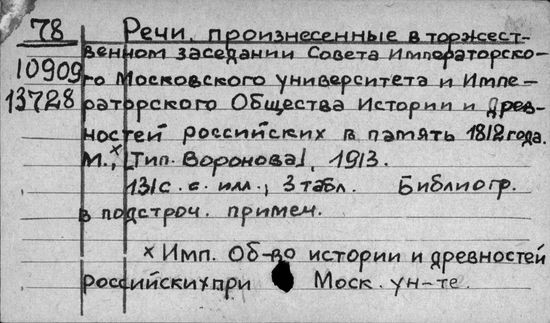 78 Речи, произнесенные в торжест-
венном заседании Совета Императорско-
10909 го Московского университета и Импе-
13728 раторского Общества Истории и Древ-
ностей российских в память 1812 года.
М.,× [Тип. Воронова], 1913.
131с. с. илл., 3 табл. Библиогр.
в подстроч. примеч.
× Имп. Об-во истории и древностей
российских при Моск. ун-те.